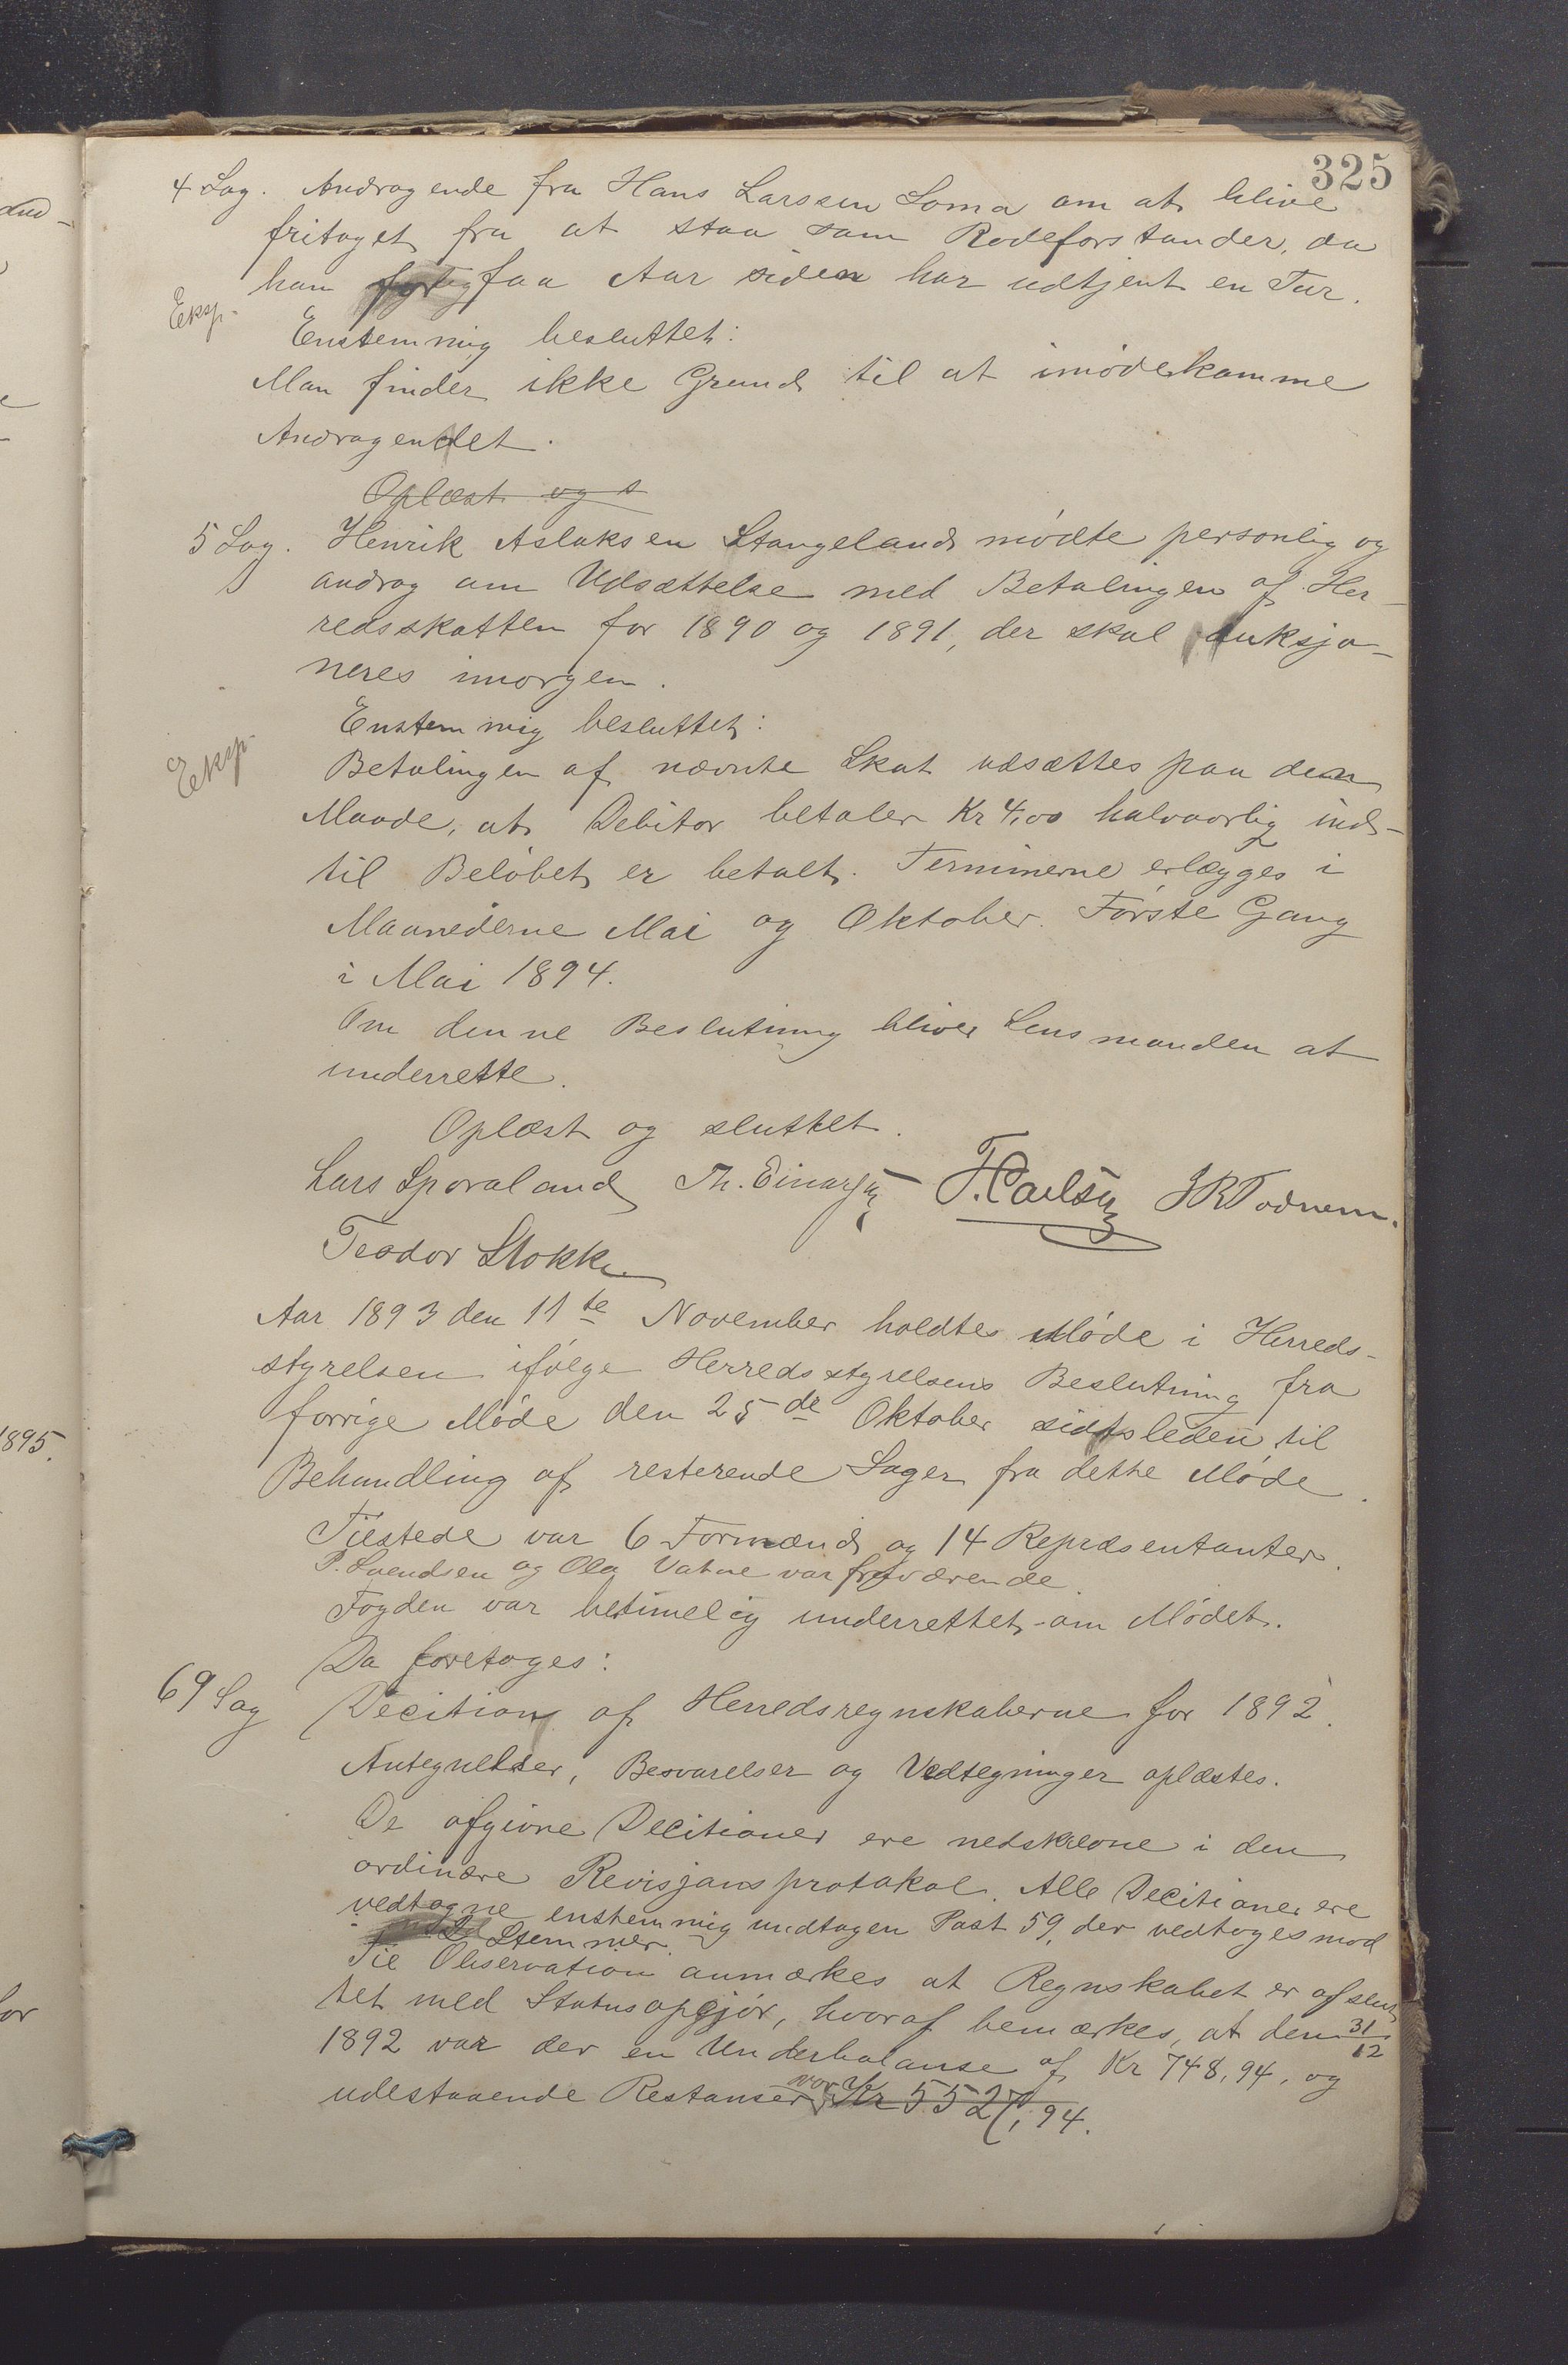 325
4 Sag. Andragende fra Hans Larssen Soma om at blive
fritaget fra at staa som Rodeforstander, da
han faa Aar siden har udtjent en Tur.
Eksp.
Enstemmig besluttet:
Man finder ikke Grund til at imødekomme
Andragendet.
Oplæst og s
5 Sag. Henrik Aslaksen Stangeland mødte personlig og
androg om Udsættelse med Betalingen af Her-
redsskatten for 1890 og 1891, der skal auksjo-
neres imorgen.
Enstemmig besluttet:
Eksp.
Betalingen af nævnte Skat udsættes paa den
Maade, at Debitor betaler Kr 4,00 halvaarlig ind-
til Beløbet er betalt. Terminerne erlægges i
Maanederne Mai og Oktober. Første Gang
i Mai 1894.
Om denne Beslutning bliver Lensmanden at
underrette.
Oplæst og sluttet.
Lars Sporaland Th. Einarsen T. Carlsen J R Todnem.
Teodor Stokke
Aar 1893 den 11te November holdtes Møde i Herreds-
styrelsen ifølge Herredsstyrelsens Beslutning fra
forrige Møde den 25de Oktober sidtsleden til
Behandling af resterende Sager fra dette Møde.
Tilstede var 6 Formænd og 14 Repræsentanter.
P. Svendsen og Ola Vatne var fraværende.
Fogden var betimelig underrettet om Mødet.
Da foretoges:
69 Sag Decition af Herredsregnskaberne for 1892.
Antegnelser, Besvarelser og Vedtegninger oplæstes.
De afgivne Decitioner ere nedskrevne i den
ordinære Revisjonsprotokol. Alle Decitioner ere
vedtagne enstemmig undtagen Post 59, der vedtoges mod
2 Stemmer.
Til Observation anmærkes at Regnskabet er afslut
tet med Statusopgjør, hvoraf bemærkes, at den 31/12
1892 var der en Underbalanse af Kr 748,94, og
udestaaende Restanser var Kr 5527,94.